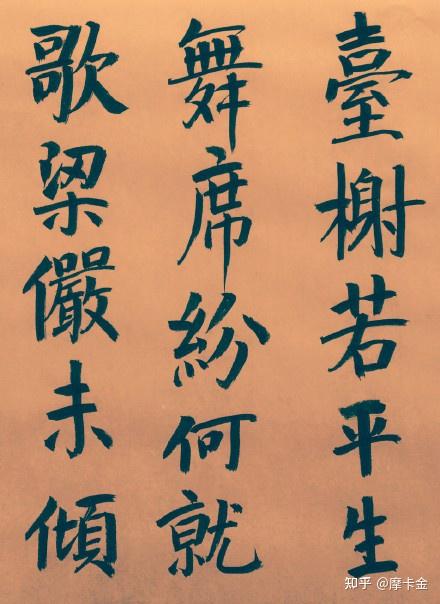 臺榭若平生
舞席紛何就
歌梁儼未傾
知乎 @摩卡金